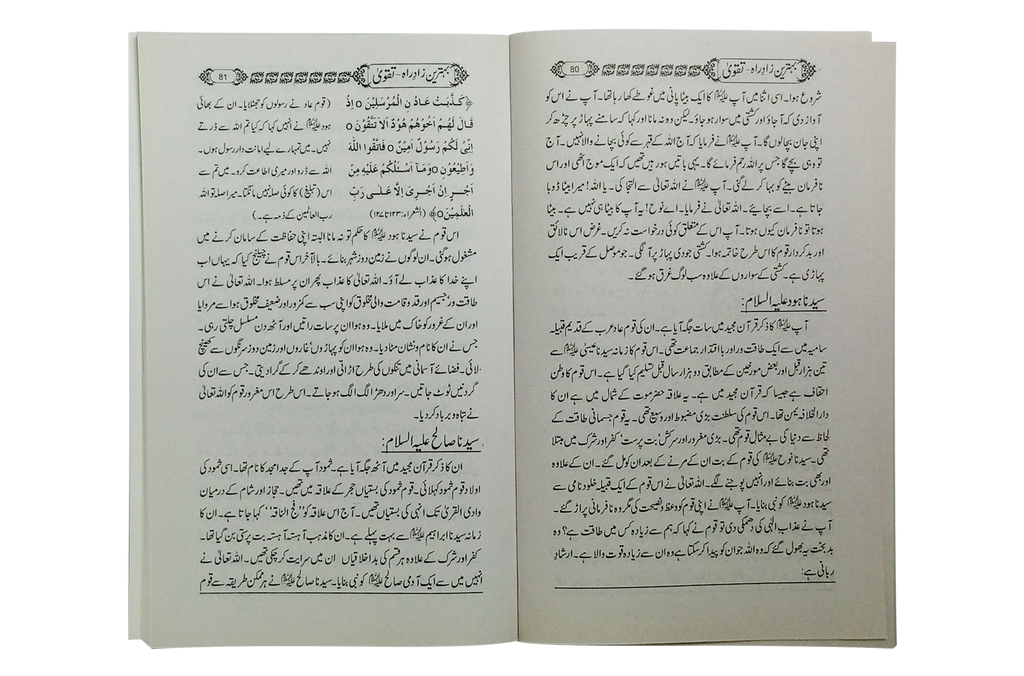 بہترین زادِ راہ - تقویٰ 80
شروع ہوا۔ اسی اثنا میں آپ علیہ السلام کا ایک بیٹا پانی میں غوطے کھا رہا تھا۔ آپ نے اس کو
آواز دی کہ آ جاؤ اور کشتی میں سوار ہو جاؤ۔ لیکن وہ نہ مانا اور کہا کہ سامنے پہاڑ پر چڑھ کر
اپنی جان بچا لوں گا۔ آپ علیہ السلام نے فرمایا کہ آج اللہ کے قہر سے کوئی بچانے والا نہیں۔ آج
تو وہی بچے گا جس پر اللہ رحم فرمائے گا۔ یہی باتیں ہو رہیں تھیں کہ ایک موج اٹھی اور اس
نافرمان بیٹے کو بہا کر لے گئی۔ آپ علیہ السلام نے اللہ تعالیٰ سے التجا کی۔ یا اللہ! میرا بیٹا ڈوبا
جاتا ہے۔ اسے بچائیے۔ اللہ تعالیٰ نے فرمایا۔ اے نوح! یہ آپ کا بیٹا ہی نہیں ہے۔ بیٹا
ہوتا تو نافرمان کیوں ہوتا۔ آپ اس کے متعلق کوئی درخواست نہ کریں۔ غرض اس نالائق
اور بدکردار قوم کا اس طرح خاتمہ ہوا۔ کشتی جودی پہاڑ پر آ لگی۔ جو موصل کے قریب ایک
پہاڑی ہے۔ کشتی کے سواروں کے علاوہ سب لوگ غرق ہو گئے۔
سیدنا ہود علیہ السلام:
آپ علیہ السلام کا ذکر قرآن مجید میں سات جگہ آیا ہے۔ ان کی قوم عاد عرب کے قدیم قبیلہ
سامیہ میں سے ایک طاقت ور اور با اقتدار جماعت تھی۔ اس قوم کا زمانہ سیدنا عیسیٰ علیہ السلام سے
تین ہزار قبل اور بعض مورخین کے مطابق دو ہزار سال قبل تسلیم کیا گیا ہے۔ اس قوم کا وطن
احقاف ہے جیسا کہ قرآن مجید میں ہے۔ یہ علاقہ حضرموت کے شمال میں ہے ان کا
دارالخلافہ یمن تھا۔ اس قوم کی سلطنت بڑی مضبوط اور وسیع تھی۔ یہ قوم جسمانی طاقت کے
لحاظ سے دنیا کی بے مثال قوم تھی۔ بڑی مغرور اور سرکش‘ بت پرست‘ کفر اور شرک میں مبتلا
تھی۔ سیدنا نوح علیہ السلام کی قوم کے بت ان کے مرنے کے بعد ان کو مل گئے۔ ان کے علاوہ
اور بھی بت بنائے اور انہیں پوجنے لگے۔ اللہ تعالیٰ نے اس قوم کے ایک قبیلہ خلود نامی سے
سیدنا ہود علیہ السلام کو نبی بنایا۔ آپ علیہ السلام نے اپنی قوم کو وعظ و نصیحت کی مگر وہ نافرمانی پر اڑ گئے۔
آپ نے عذاب الٰہی کی دھمکی دی تو قوم نے کہا کہ ہم سے زیادہ کس میں طاقت ہے؟ وہ
بدبخت یہ بھول گئے کہ وہ اللہ جو ان کو پیدا کر سکتا ہے وہ ان سے زیادہ قوت والا ہے۔ ارشادِ
ربانی ہے:
بہترین زادِ راہ - تقویٰ 81
﴿كَذَّبَتْ عَادُ نِ الْمُرْسَلِيْنَ o اِذْ
قَالَ لَهُمْ اَخُوْهُمْ هُوْدٌ اَلَا تَتَّقُوْنَ o
اِنِّىْ لَكُمْ رَسُوْلٌ اَمِيْنٌ o فَاتَّقُوا اللّٰهَ
وَاَطِيْعُوْنِ o وَمَا اَسْئَلُكُمْ عَلَيْهِ مِنْ
اَجْرٍ اِنْ اَجْرِىَ اِلَّا عَلٰى رَبِّ
الْعٰلَمِيْنَ o﴾ (الشعراء: ۱۲۳ تا ۱۲۷)
(قوم عاد نے رسولوں کو جھٹلایا۔ ان کے بھائی
ہود علیہ السلام نے انہیں کہا کہ کیا تم اللہ سے ڈرتے
نہیں۔ میں تمہارے لیے امانت دار رسول ہوں۔
اللہ سے ڈرو اور میری اطاعت کرو۔ میں تم سے
اس (تبلیغ) کا کوئی صلہ نہیں مانگتا۔ میرا صلہ تو اللہ
رب العالمین کے ذمہ ہے۔)
اس قوم نے سیدنا ہود علیہ السلام کا حکم تو نہ مانا البتہ اپنی حفاظت کے سامان کرنے میں
مشغول ہو گئی۔ ان لوگوں نے زمین دوز شہر بنائے۔ بالآخر اس قوم نے چیلنج کیا کہ یہاں اب
اپنے خدا کا عذاب لے آؤ۔ اللہ تعالیٰ کا عذاب پھر ان پر مسلط ہوا۔ اللہ تعالیٰ نے اس
طاقت ور جسیم اور قد و قامت والی مخلوق کو اپنی سب سے کمزور اور ضعیف مخلوق ہوا سے مروایا
اور ان کے غرور کو خاک میں ملایا۔ وہ ہوا ان پر سات راتیں اور آٹھ دن مسلسل چلتی رہی۔
جس نے ان کا نام و نشان مٹا دیا۔ وہ ہوا ان کو پہاڑوں‘ غاروں اور زمین دوز سرنگوں سے کھینچ
لاتی۔ فضائے آسمانی میں تنکوں کی طرح اڑاتی اور اوندھے کر کے گرا دیتی۔ جس سے ان کی
گردنیں ٹوٹ جاتیں۔ سر اور دھڑ الگ الگ ہو جاتے۔ اس طرح اس مغرور قوم کو اللہ تعالیٰ
نے تباہ و برباد کر دیا۔
سیدنا صالح علیہ السلام:
ان کا ذکر قرآن مجید میں آٹھ جگہ آیا ہے۔ ثمود آپ کے جد امجد کا نام تھا۔ اسی ثمود کی
اولاد قوم ثمود کہلائی۔ قوم ثمود کی بستیاں حجر کے علاقہ میں تھیں۔ حجاز اور شام کے درمیان
وادی القریٰ تک انہی کی بستیاں تھیں۔ آج اس علاقہ کو ”فج الناقہ“ کہا جاتا ہے۔ ان کا
زمانہ سیدنا ابراہیم علیہ السلام سے بہت پہلے ہے۔ ان کا مذہب آہستہ آہستہ بت پرستی بن گیا تھا۔
کفر اور شرک کے علاوہ ہر قسم کی بداخلاقیاں ان میں سرایت کر چکی تھیں۔ اللہ تعالیٰ نے
انہیں میں سے ایک آدمی صالح علیہ السلام کو نبی بنایا۔ سیدنا صالح علیہ السلام نے ہر ممکن طریقہ سے قوم